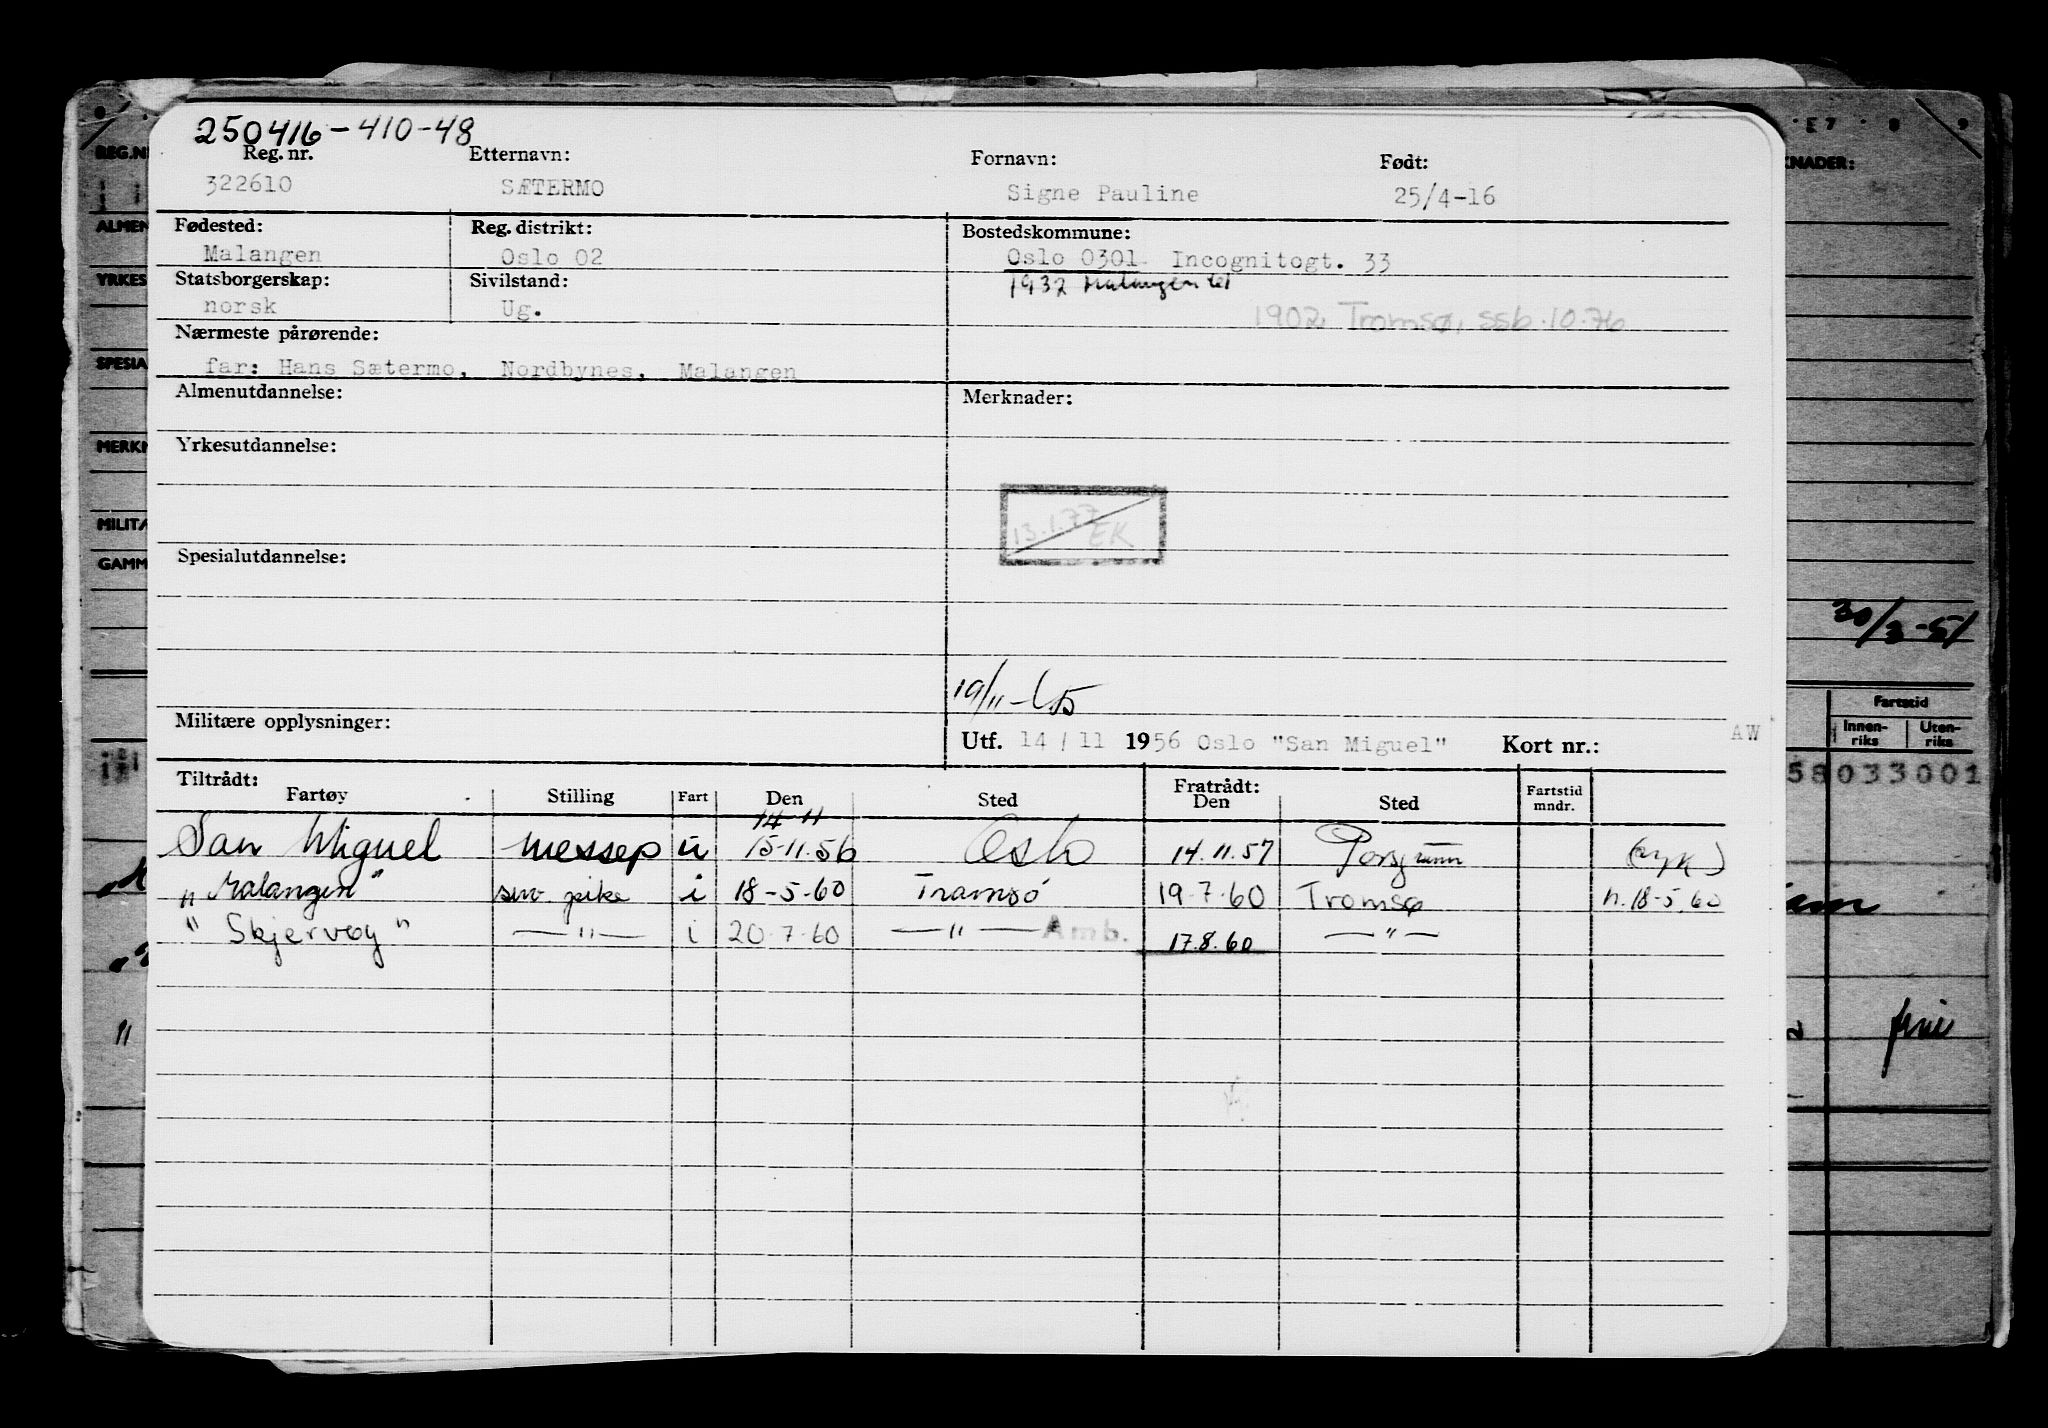 250416-410-48
Reg. nr. Etternavn: Fornavn: Født:
322610 SÆTERMO Signe Pauline 25/4-16
Fødested: Reg. distrikt: Bostedskommune:
Malangen Oslo 02 Oslo 0301 Incognitogt. 33
Statsborgerskap: Sivilstand: 1932 Malangen
norsk Ug. 1902 Tromsø, ssb. 10.76
Nærmeste pårørende:
far: Hans Sætermo, Nordbynes, Malangen
Almenutdannelse: Merknader:
Yrkesutdannelse:
13.1.77 EK
Spesialutdannelse:
19/11-65
Militære opplysninger:
Utf. 14/11 1956 Oslo "San Miguel" Kort nr.: AW
Tiltrådt: Fratrådt:
Fartøy Stilling Fart Den Sted Den Sted Fartstid mndr.
14 11
San Miguel messep u 15-11.56 Oslo 14.11.57 Porsgrunn (syk)
"Malangen" serv. pike i 18-5-60 Tromsø 19.7.60 Tromsø n.18-5.60
"Skjervøy" —"— i 20.7.60 —"— Amb. 17.8.60 —"—
REG.N
ALMEN
YRKES
SPESIA
MERKN
MILITÆ
GAMM
E7 8 9
KNADER:
30/3-51
Fartstid
Innen-riks Uten-riks
58033001